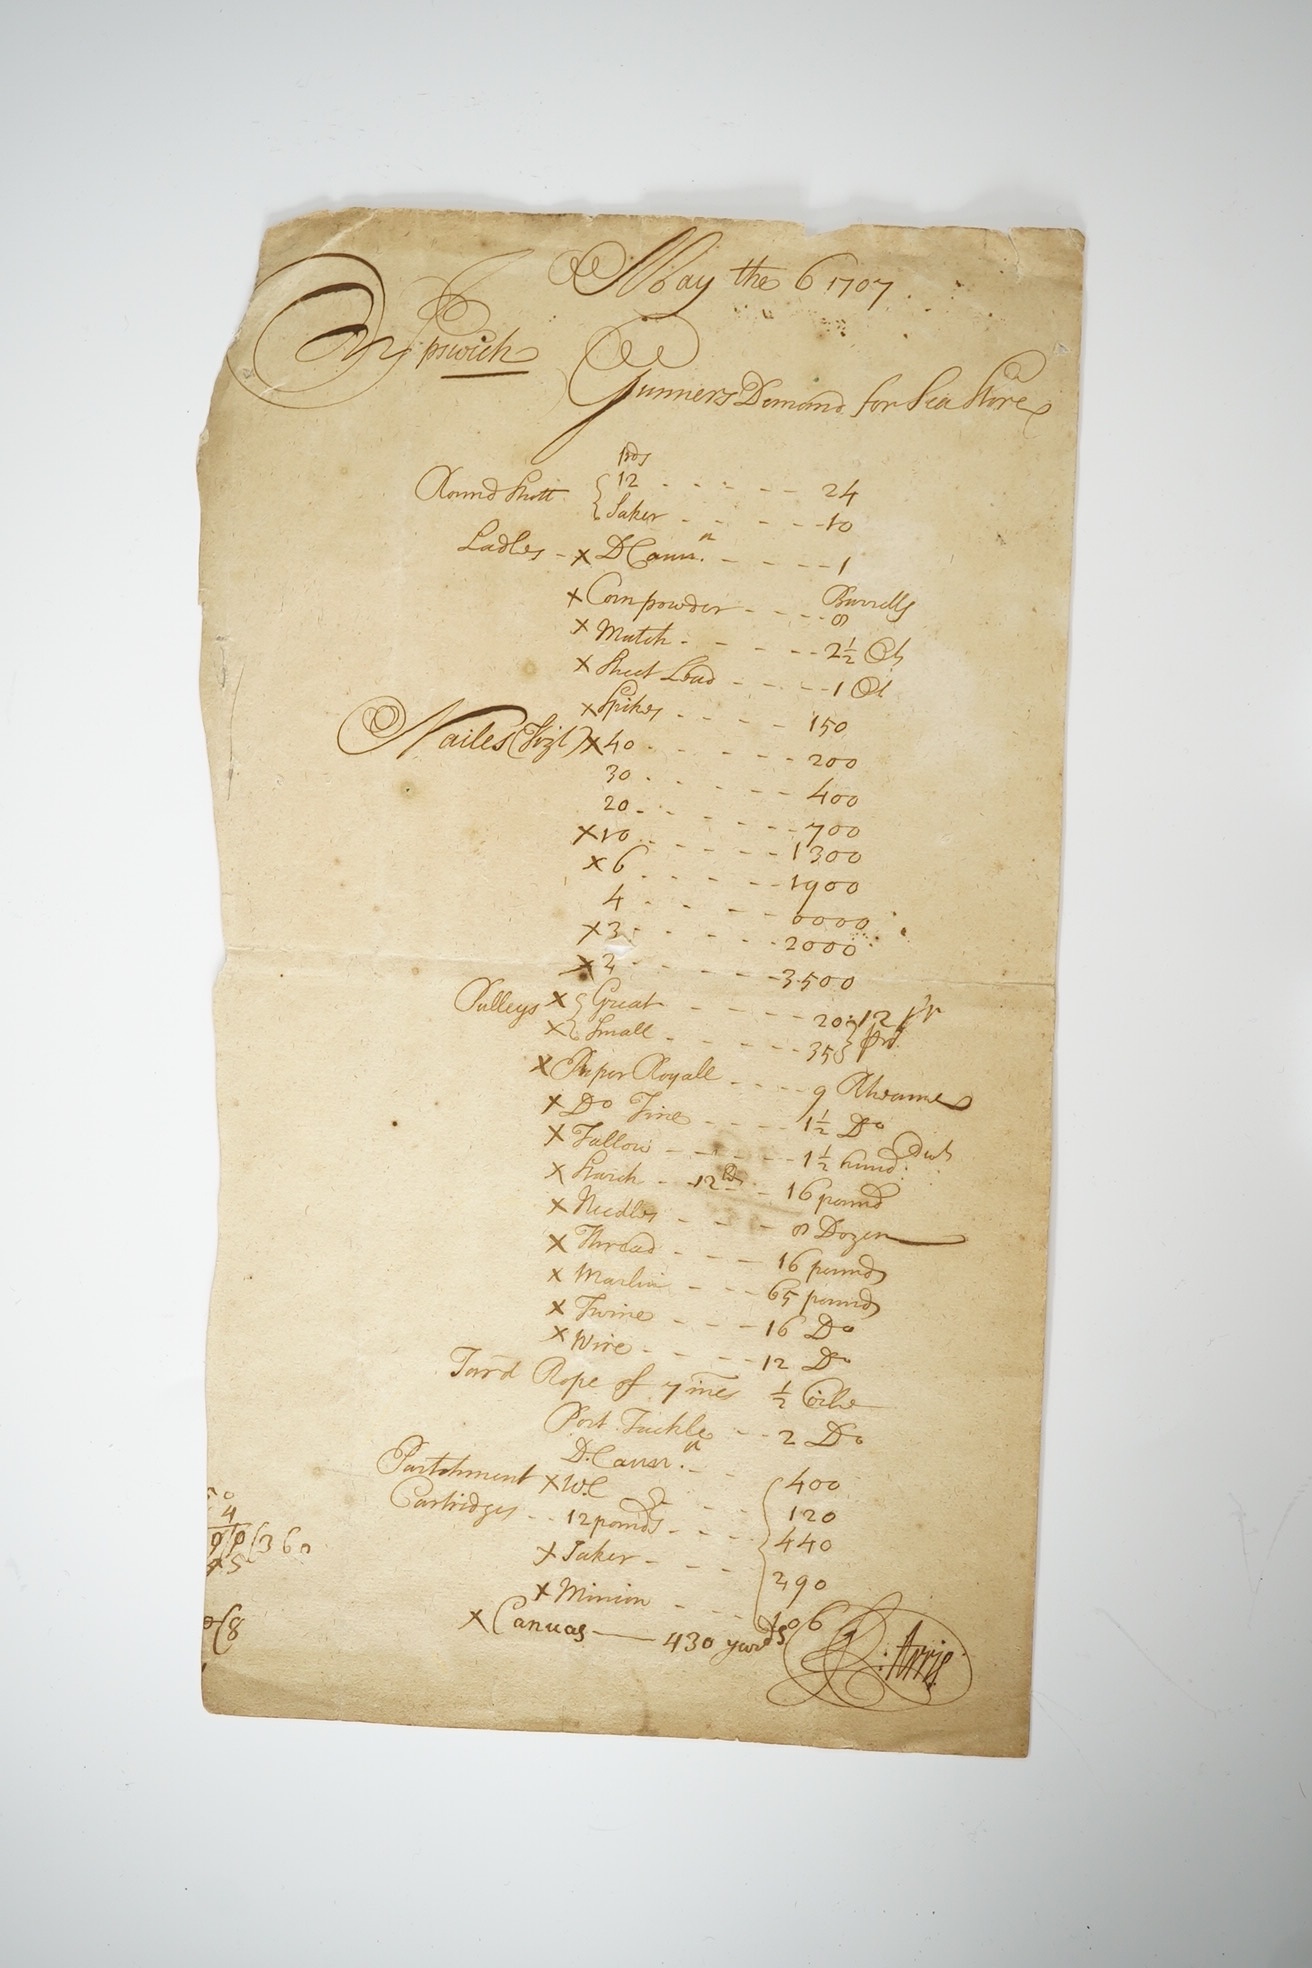 May the 6 1707
Ipswich
Gunners Demand for Sea Store
pds
Round Shott { 12 - - - - - 24
Saker - - - - - 10
Ladles - x D Cann.n - - - - - 1
x Cornpowder - - - - Barrells 8
x Match - - - - - 2½ Ct
x Sheet Lead - - - - - 1 Ct
x Spikes - - - - 150
Nailes (Vizt) x 40 - - - - - 200
30 - - - - - 400
20 - - - - - 700
x 10 - - - - - 1300
x 6 - - - - - 1900
4 - - - - - 0000
x 3 - - - - - 2000
x 2 - - - - - 3500
Pulleys x { Great - - - - - 20 } 12 pr
x { Small - - - - - 35 } prd
x Paper Royall - - - - 9 Rheames
x Do Fine - - - - 1½ Do
x Tallow - - - - - 1½ hund.
x Starch - - 12 - - 16 pound
x Needles - - - - 8 Dozen
x Thread - - - - 16 pound
x Marlin - - - - 65 pound
x Twine - - - - 16 Do
x Wire - - - - - 12 Do
Tarrd Rope of 7 ines ½ Coile
Port Tackle - - 2 Do
D.Cann.n - - { 400
Partchment x W.C - - 120
Cartridges - - 12 pound - - - 440
x Saker - - - - 290
x Minion - - - - 106
x Canuas — 430 yards
: Arris
4
(360
45
(8